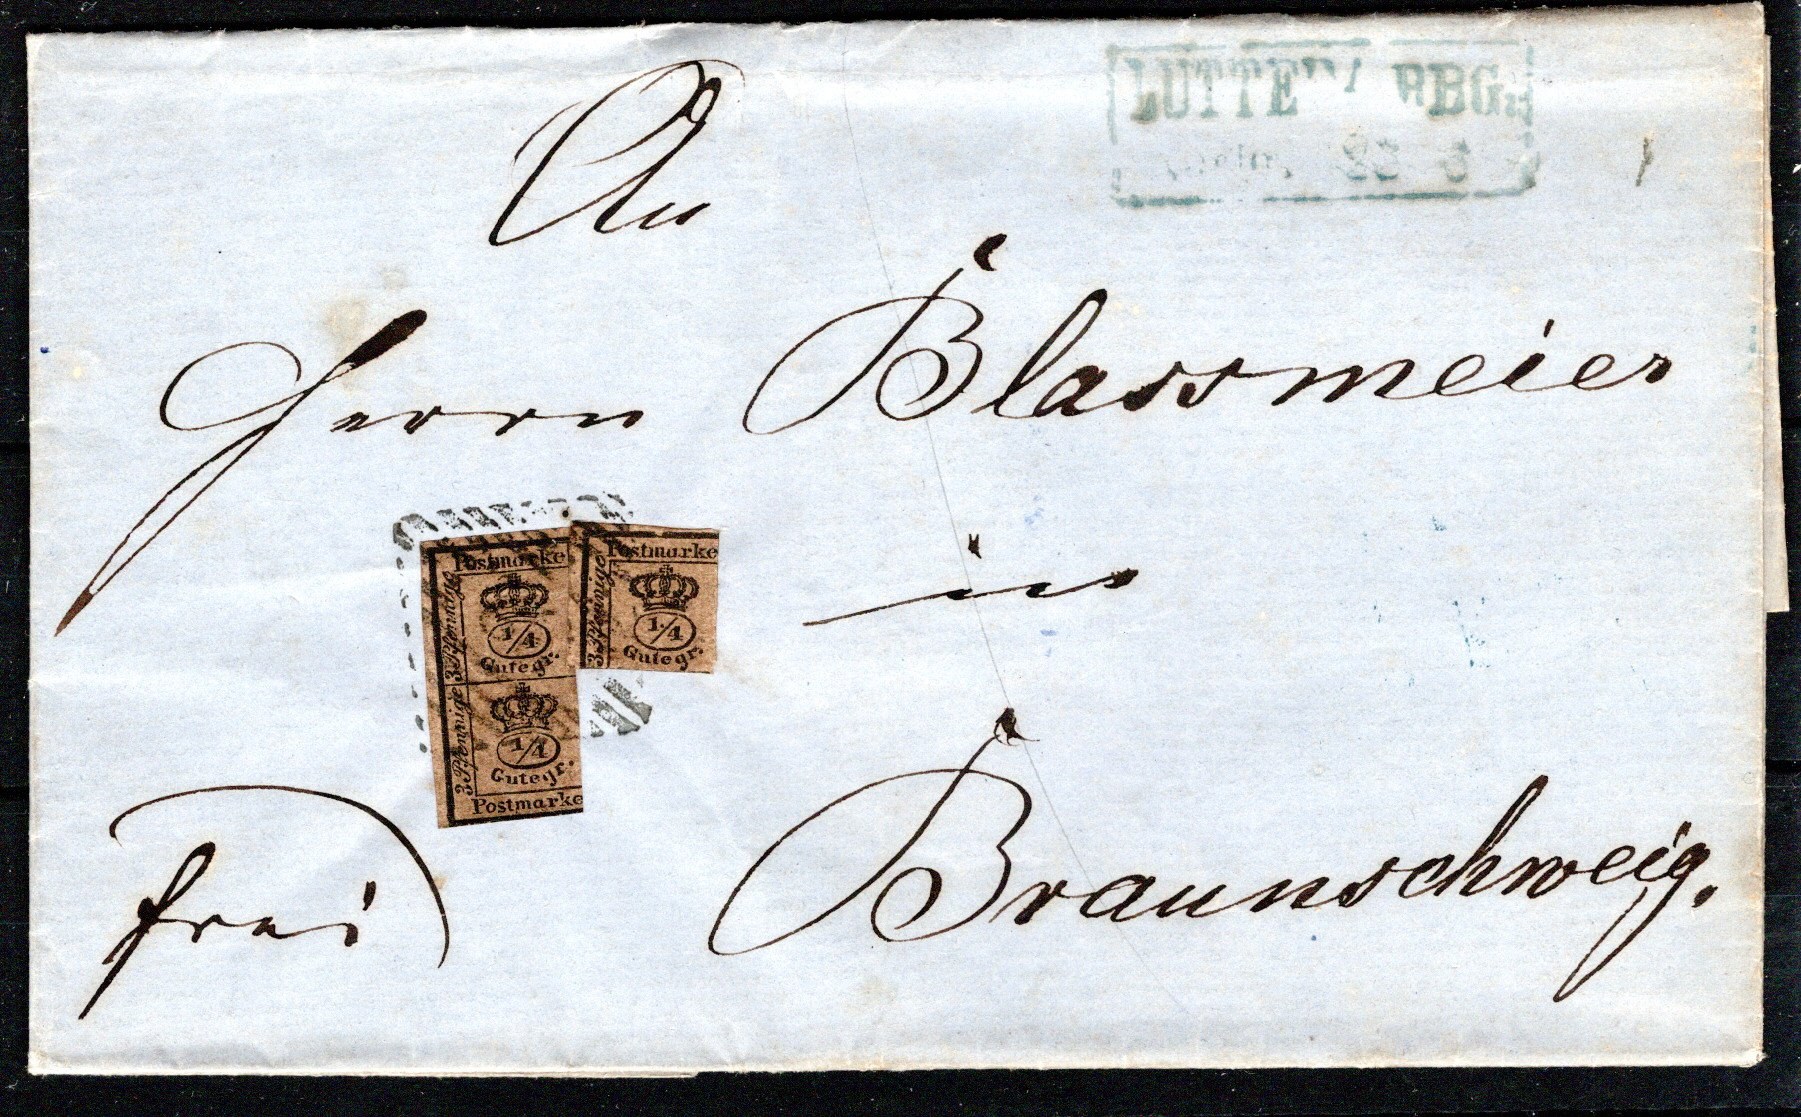 LUTTER A/BBG.
An
Herrn Blassmeier
in
Braunschweig.
frei
Postmarke
3 Pfennige
1/4
Gutegr.
3 Pfennige
1/4
Gutegr.
Postmarke
Postmarke
3 Pfennige
1/4
Gutegr.